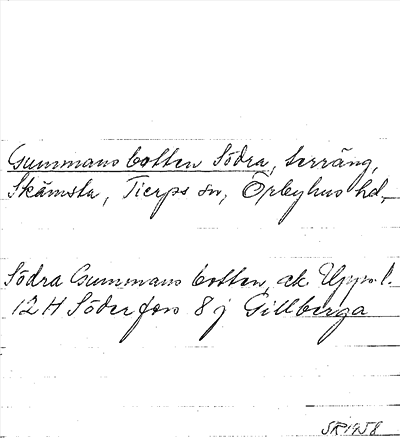 Gummans botten Södra, terräng,
Skämsta, Tierps sn, Örbyhus hd,
Södra Gummans botten, ek. Upps. l.
12 H Söderfors 8 j Gillberga
SR 1958